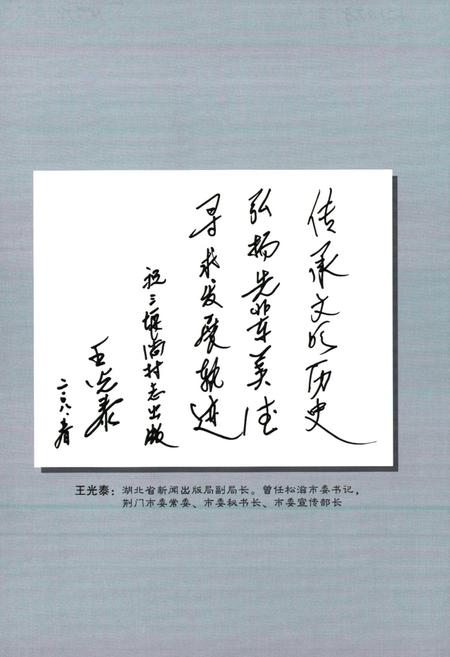 传承文明历史
弘扬先辈美德
寻求发展轨迹
祝三堰淌村志出版
王光泰
二〇〇八.春
王光泰：湖北省新闻出版局副局长。曾任松滋市委书记，
荆门市委常委、市委秘书长、市委宣传部长